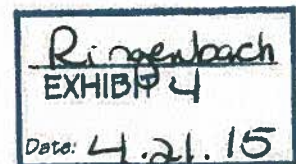 Ringenbach
EXHIBIT 4
Date: 4.21.15